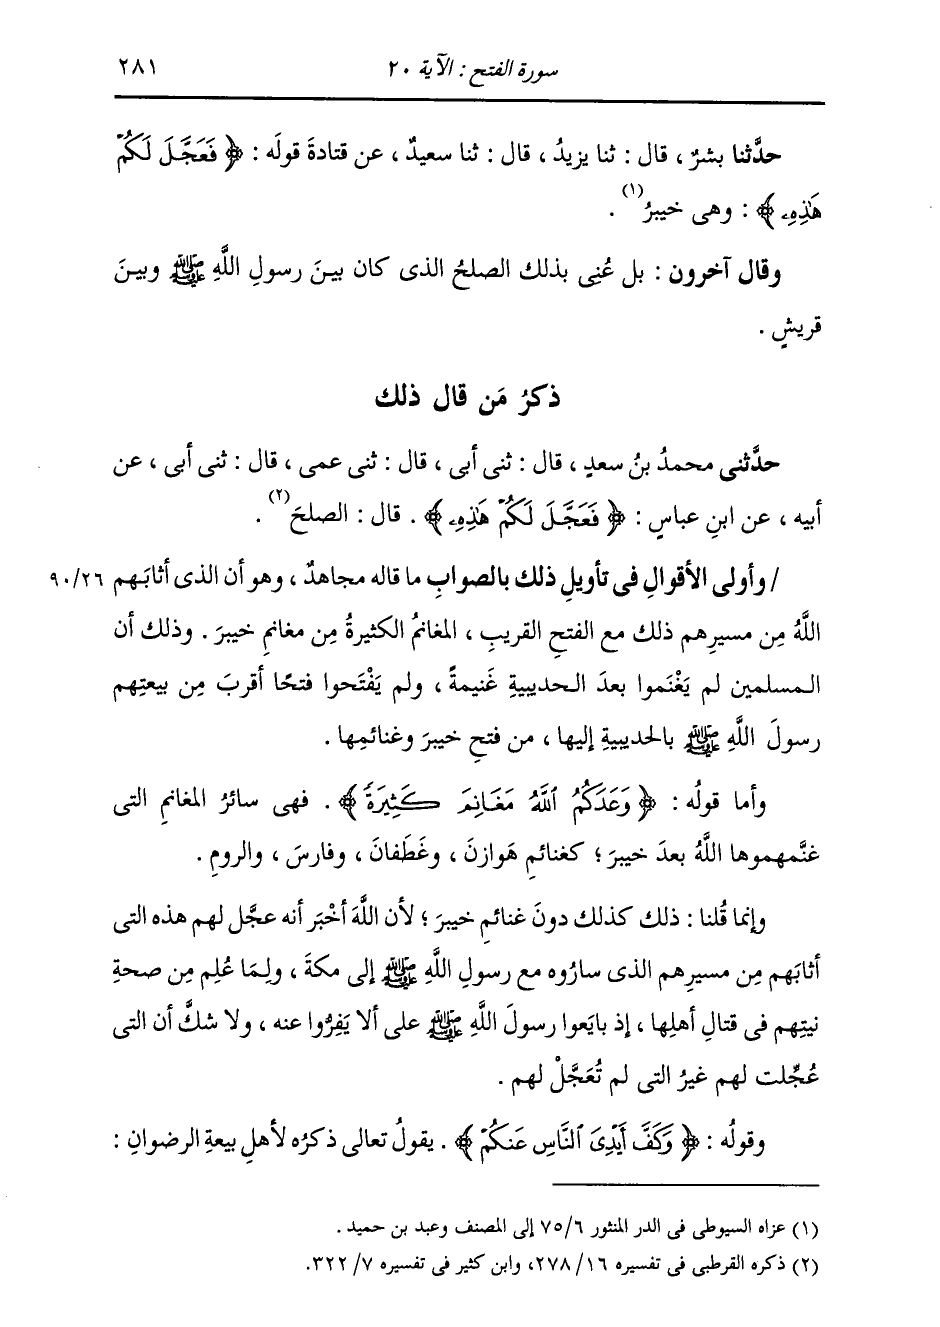 سورة الفتح : الآية ٢٠
٢٨١
حدَّثنا بشرٌ ، قال : ثنا يزيدُ ، قال : ثنا سعيدٌ ، عن قتادةَ قولَه : ﴿ فَعَجَّلَ لَكُمْ
هَٰذِهِۦ ﴾ : وهى خيبرُ(١) .
وقال آخرون : بل عُنِى بذلك الصلحُ الذى كان بينَ رسولِ اللَّهِ ﷺ وبينَ
قريشٍ .
ذكرُ مَن قال ذلك
حدَّثنى محمدُ بنُ سعدٍ ، قال : ثنى أبى ، قال : ثنى عمى ، قال : ثنى أبى ، عن
أبيه ، عن ابنِ عباسٍ : ﴿ فَعَجَّلَ لَكُمْ هَٰذِهِۦ ﴾ . قال : الصلحَ(٢) .
/ وأولى الأقوالِ فى تأويلِ ذلك بالصوابِ ما قاله مجاهدٌ ، وهو أن الذى أثابَهم ٩٠/٢٦
اللَّهُ مِن مسيرِهم ذلك مع الفتحِ القريبِ ، المغانمُ الكثيرةُ مِن مغانمِ خيبرَ . وذلك أن
المسلمين لم يَغْنَموا بعدَ الحديبيةِ غَنيمةً ، ولم يَفْتَحوا فتحًا أقربَ مِن بيعتِهم
رسولَ اللَّهِ ﷺ بالحديبيةِ إليها ، من فتحِ خيبرَ وغنائمِها .
وأما قولُه : ﴿ وَعَدَكُمُ ٱللَّهُ مَغَانِمَ كَثِيرَةً ﴾ . فهى سائرُ المغانمِ التى
غنَّمهموها اللَّهُ بعدَ خيبرَ ؛ كغنائمِ هَوازنَ ، وغَطَفانَ ، وفارسَ ، والرومِ .
وإنما قُلنا : ذلك كذلك دونَ غنائمِ خيبرَ ؛ لأن اللَّهَ أخْبَر أنه عجَّل لهم هذه التى
أثابَهم مِن مسيرِهم الذى سارُوه مع رسولِ اللَّهِ ﷺ إلى مكةَ ، ولِمَا عُلِم مِن صحةِ
نيتِهم فى قتالِ أهلِها ، إذ بايَعوا رسولَ اللَّهِ ﷺ على ألا يَفِرُّوا عنه ، ولا شكَّ أن التى
عُجِّلت لهم غيرُ التى لم تُعَجَّلْ لهم .
وقولُه : ﴿ وَكَفَّ أَيْدِىَ ٱلنَّاسِ عَنكُمْ ﴾ . يقولُ تعالى ذكرُه لأهلِ بيعةِ الرضوانِ :
(١) عزاه السيوطى فى الدر المنثور ٧٥/٦ إلى المصنف وعبد بن حميد .
(٢) ذكره القرطبى فى تفسيره ٢٧٨/١٦، وابن كثير فى تفسيره ٣٢٢/٧.